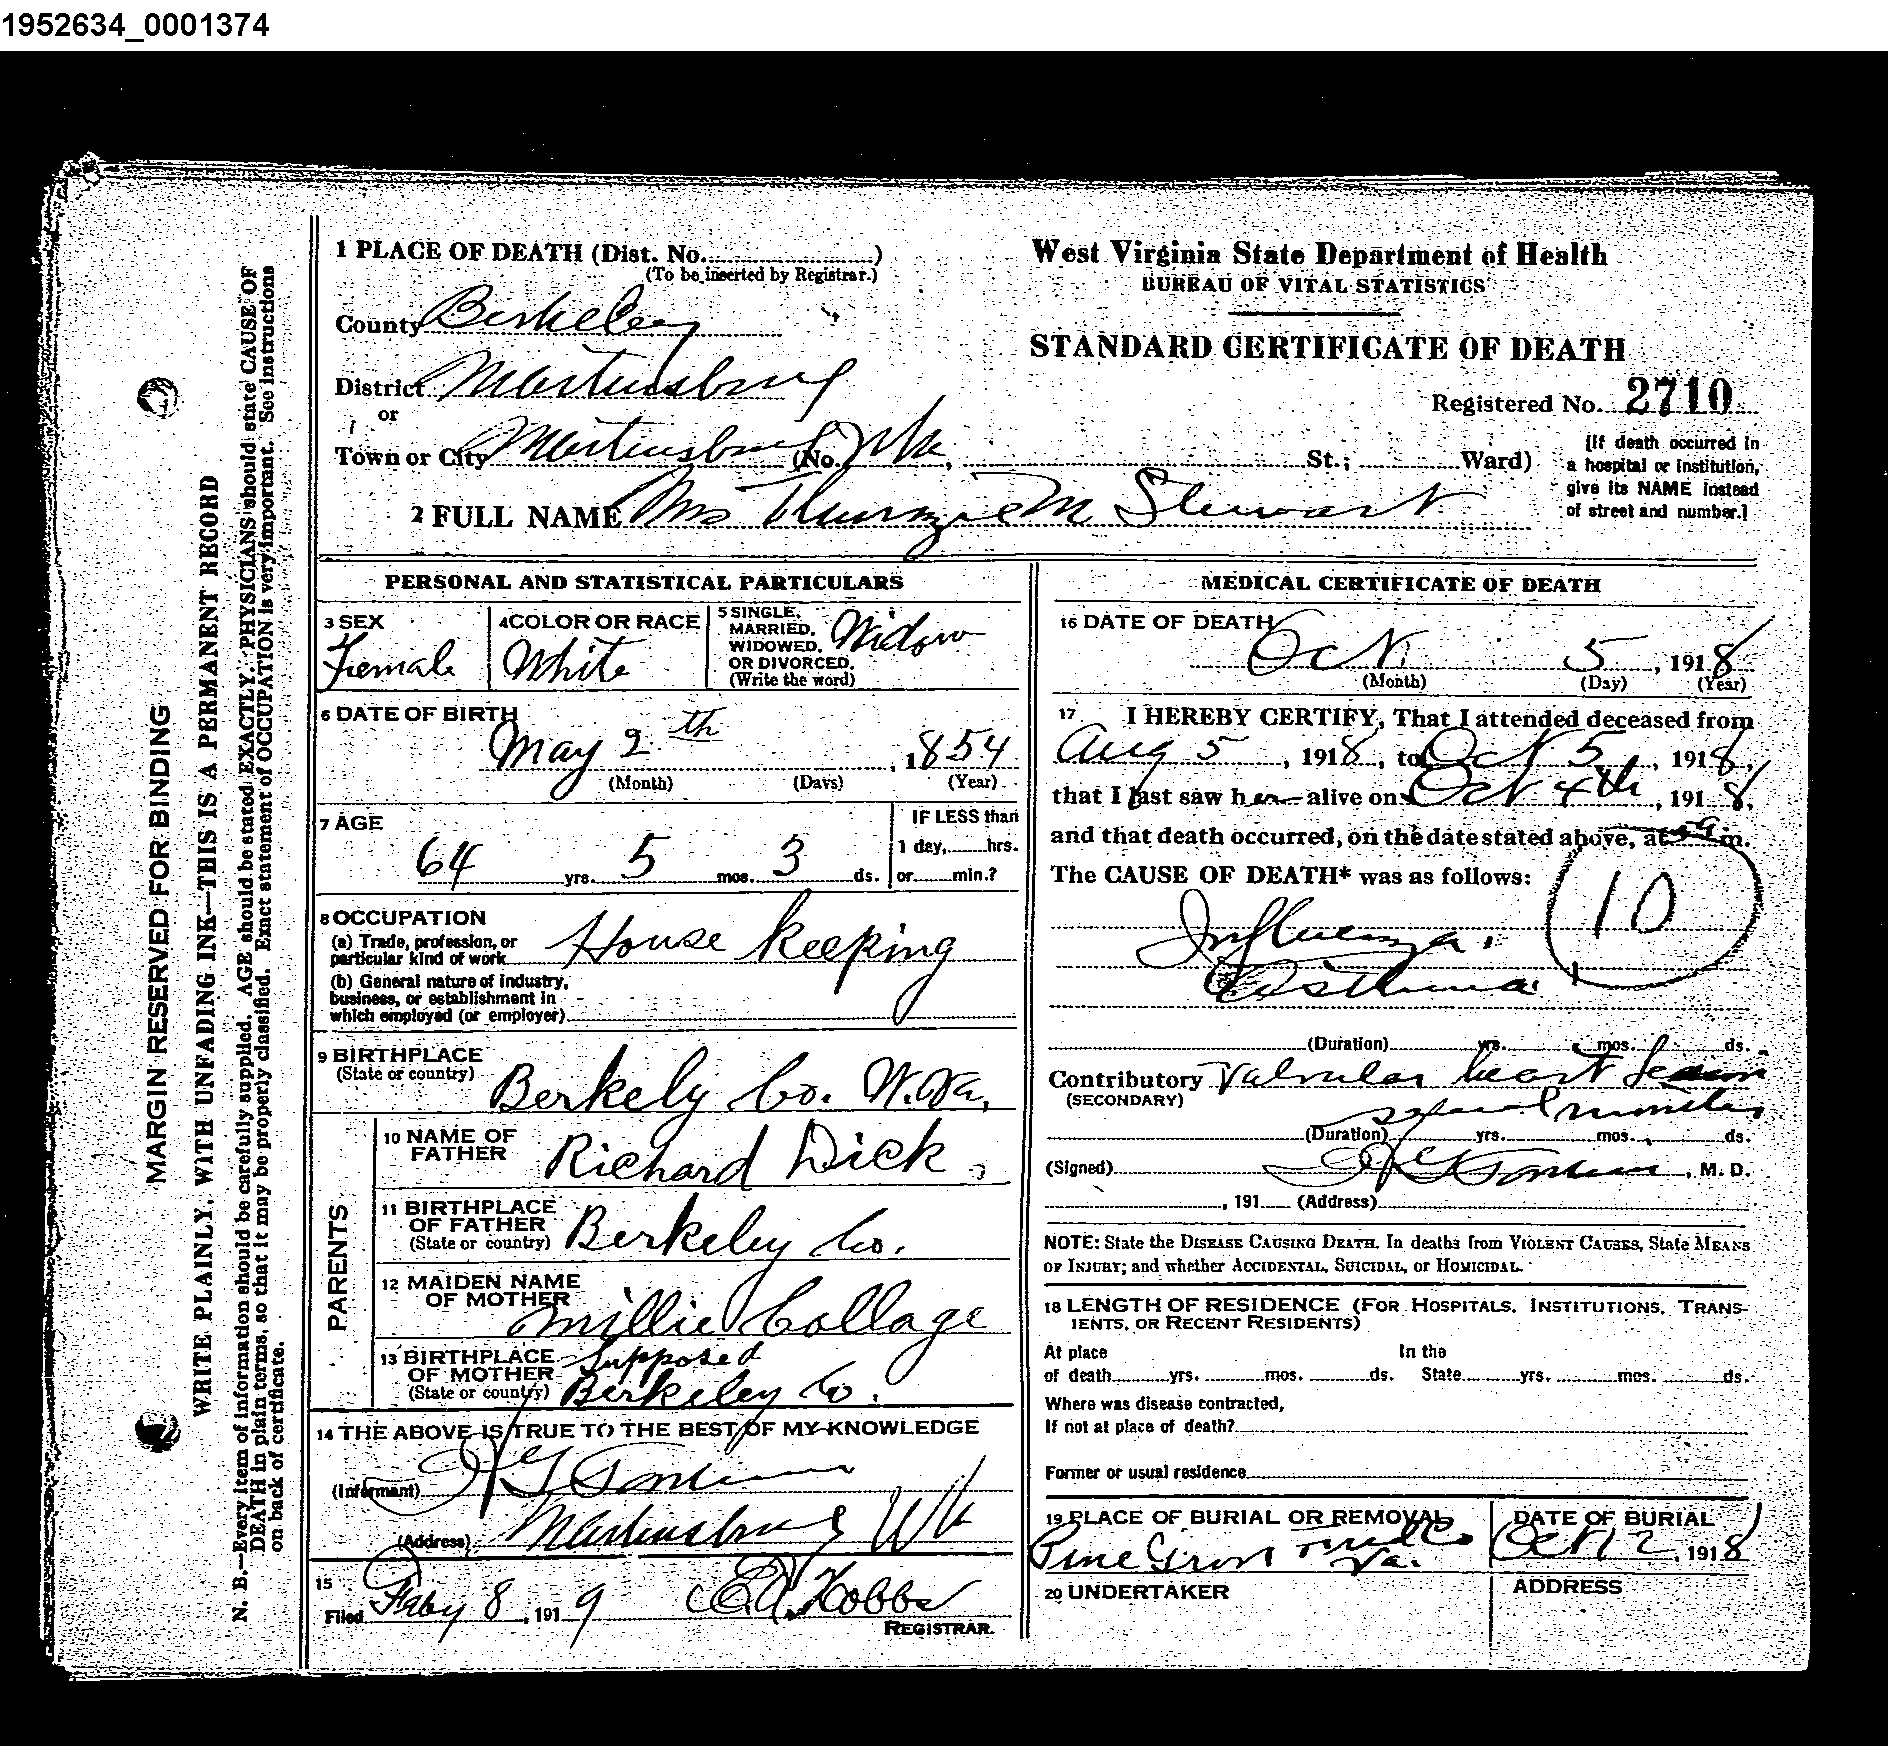 1952634_0001374
MARGIN RESERVED FOR BINDING
WRITE PLAINLY, WITH UNFADING INK—THIS IS A PERMANENT RECORD
N. B.—Every item of information should be carefully supplied. AGE should be stated EXACTLY. PHYSICIANS should state CAUSE OF
DEATH in plain terms, so that it may be properly classified. Exact statement of OCCUPATION is very important. See instructions
on back of certificate.
1 PLACE OF DEATH (Dist. No. )
(To be inserted by Registrar.)
County Berkeley
District Martinsburg
or
Town or City Martinsburg (No.
St.; Ward)
2 FULL NAME Mrs M Stewart
West Virginia State Department of Health
BUREAU OF VITAL STATISTICS
STANDARD CERTIFICATE OF DEATH
Registered No. 2710
[If death occurred in
a hospital or institution,
give its NAME instead
of street and number.]
PERSONAL AND STATISTICAL PARTICULARS
3 SEX
Female
4 COLOR OR RACE
White
5 SINGLE,
MARRIED,
WIDOWED,
OR DIVORCED,
(Write the word)
Widow
6 DATE OF BIRTH
May 2th , 1854
(Month) (Days) (Year)
7 AGE
64 yrs. 5 mos. 3 ds.
IF LESS than
1 day, hrs.
or min.?
8 OCCUPATION
(a) Trade, profession, or
particular kind of work House keeping
(b) General nature of industry,
business, or establishment in
which employed (or employer)
9 BIRTHPLACE
(State or country) Berkely Co. W.Va.
PARENTS
10 NAME OF
FATHER Richard Dick,
11 BIRTHPLACE
OF FATHER
(State or country) Berkeley Co.
12 MAIDEN NAME
OF MOTHER
Millie Collage
13 BIRTHPLACE Supposed
OF MOTHER
(State or country) Berkeley Co.
14 THE ABOVE IS TRUE TO THE BEST OF MY KNOWLEDGE
(Informant)
(Address) Martinsburg W Va
15
Filed Feby 8, 1919 Hobbs
REGISTRAR.
MEDICAL CERTIFICATE OF DEATH
16 DATE OF DEATH
Oct. 5, 1918
(Month) (Day) (Year)
17 I HEREBY CERTIFY, That I attended deceased from
Aug 5, 1918, to Oct 5, 1918,
that I last saw her alive on Oct 4th, 1918,
and that death occurred, on the date stated above, at m.
The CAUSE OF DEATH* was as follows:
10
Influenza.
Asthma
(Duration) yrs. mos. ds.
Contributory Valvular heart
(SECONDARY)
several months
(Duration) yrs. mos. ds.
(Signed) , M. D.
, 191 (Address)
NOTE: State the DISEASE CAUSING DEATH. In deaths from VIOLENT CAUSES, State MEANS
OF INJURY; and whether ACCIDENTAL, SUICIDAL, or HOMICIDAL.
18 LENGTH OF RESIDENCE (FOR HOSPITALS, INSTITUTIONS, TRANS-
IENTS, OR RECENT RESIDENTS)
At place In the
of death yrs. mos. ds. State yrs. mos. ds.
Where was disease contracted,
If not at place of death?
Former or usual residence
19 PLACE OF BURIAL OR REMOVAL
Pine Grove Va.
DATE OF BURIAL
Oct 12, 1918
20 UNDERTAKER
ADDRESS